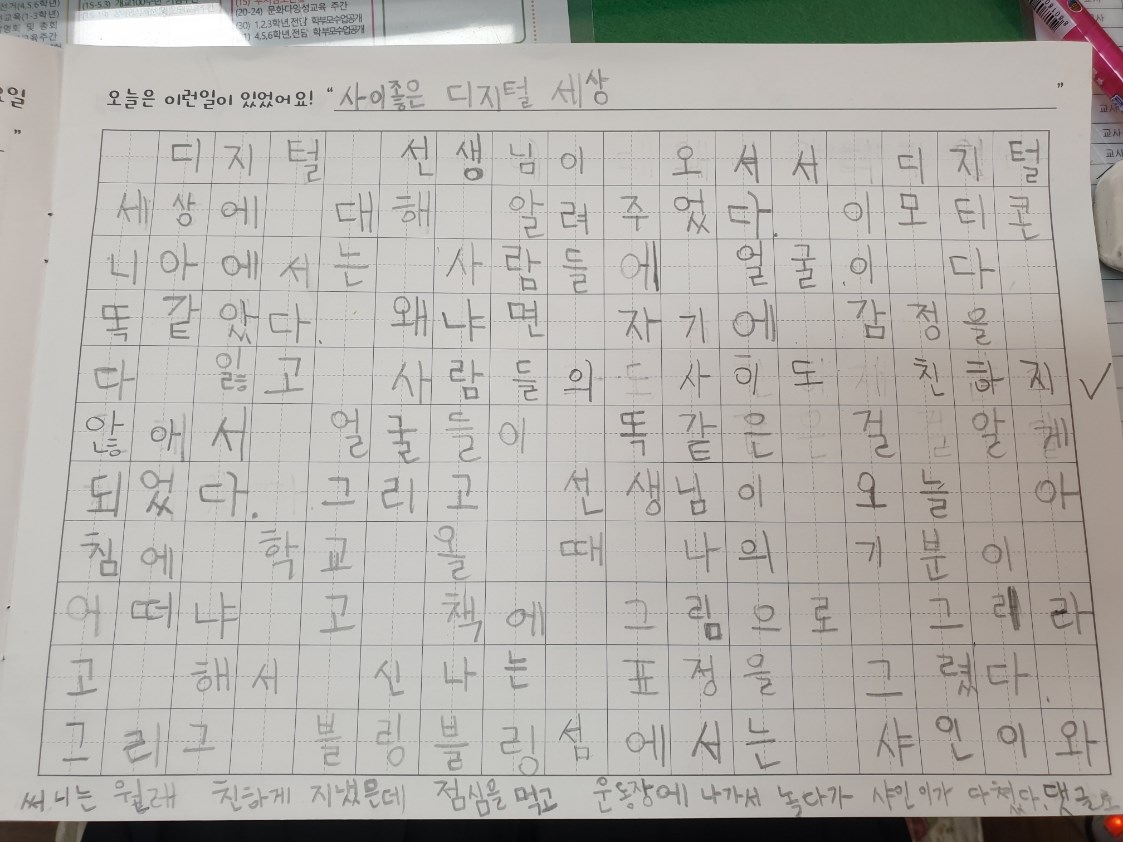 교육(1-3학년)
(20-24) 문화다양성교육 주간
(30) 1,2,3학년,전담 학부모수업공개
4,5,6학년,전담 학부모수업공개
오늘은 이런일이 있었어요! “사이좋은 디지털 세상”
디지털 선생님이 오셔서 디지털
세상에 대해 알려 주었다. 이모티콘
니아에서는 사람들에 얼굴이 다
똑같았다. 왜냐면 자기에 감정을
다 잃고 사람들의 사이도 친하지
않애서 얼굴들이 똑같은 걸 알게
되었다. 그리고 선생님이 오늘 아
침에 학교 올 때 나의 기분이
어떠냐고 책에 그림으로 그래라
고 해서 신나는 표정을 그렸다.
그리고 블링블링섬에서는 샤인이와
써니는 원래 친하게 지냈믄데 점심을 먹고 운동장에 나가서 놀다가 샤인이가 다쳤다. 댓글로